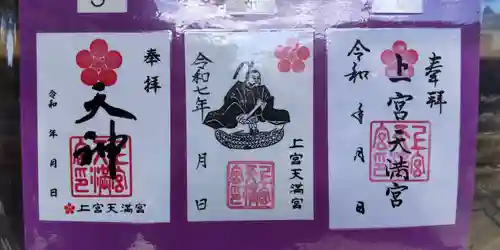 奉拝
天神
令和 年 月 日
上宮天満宮
令和七年 月 日
上宮天満宮
奉拝
上宮天満宮
令和 年 月 日